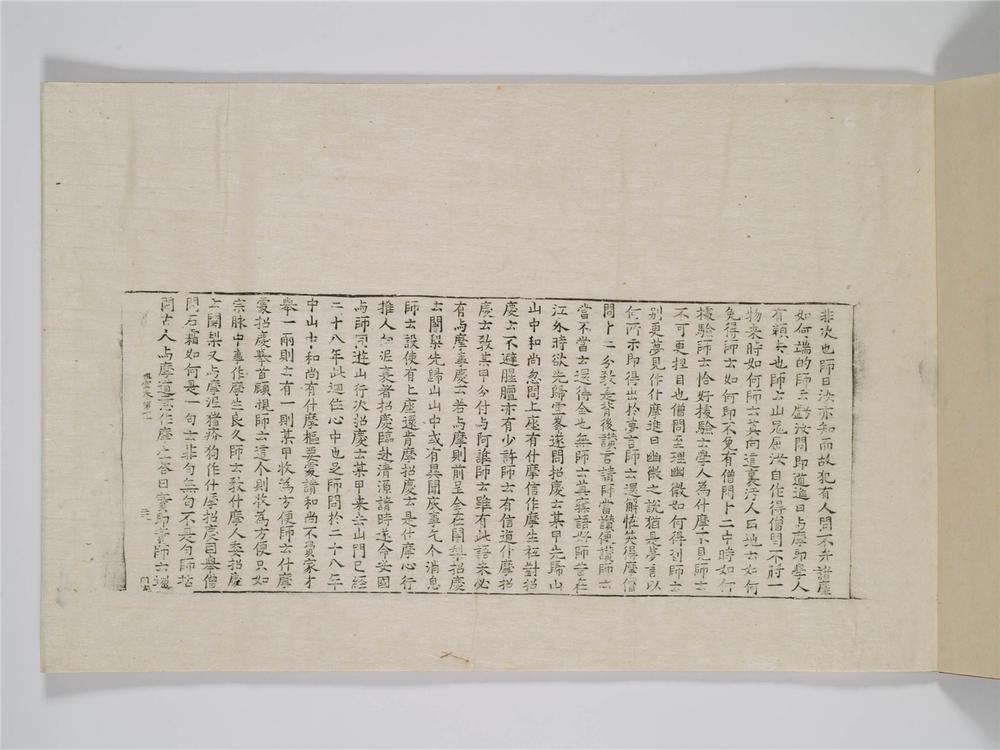 非次也師曰汝亦知而故犯有人問不弁諸塵
如何端的師云勘汝問即道進曰与摩即學人
有賴去也師云山鬼屈汝自作得僧問不將一
物来時如何師云莫向這裏污人田地云如何
免得師云如何即不免有僧問十二中時如何
據驗師云恰好據驗云學人為什摩不見師云
不可更捏目也僧問至理幽微如何得到師云
別更夢見作什摩進曰幽微之說猶是夢言以
何所示即得出於夢言師云還解恠笑得摩僧
問十二分教是背後讃言請師當讃便讃師云
當不當云還得全也無師云莫寱語好師昔在
江外時欲先歸雪峯遂問招慶云某甲先歸山
山中和尚忽問上座有什摩信作摩生祗對招
慶云不避腥膻亦有少許師云有信道什摩招
慶云教某甲分付与阿誰師云雖有此語未必
有与摩事慶云若与摩則前呈全在闍梨招慶
云闍梨先歸山山中或有異聞底事乞个消息
師云設使有上座還肯摩招慶云是什摩心行
推人向泥裏著招慶臨赴清源請時遂命安國
与師同遊山行次招慶云某甲来去山門已經
二十八年此迴住心中也足師問於二十八年
中山中和尚有什摩樞要處請和尚不恡家才
舉一兩則云有一則某甲收為方便師云什摩
處招慶舉首顧視師云這个則收為方便只如
宗脉中事作摩生良久師云教什摩人委招慶
云闍梨又与摩泥猪疥狗作什摩招慶因舉僧
問石霜如何是一句云非句無句不是句師拈
問古人与摩道意作摩生答曰寔即寔師云還